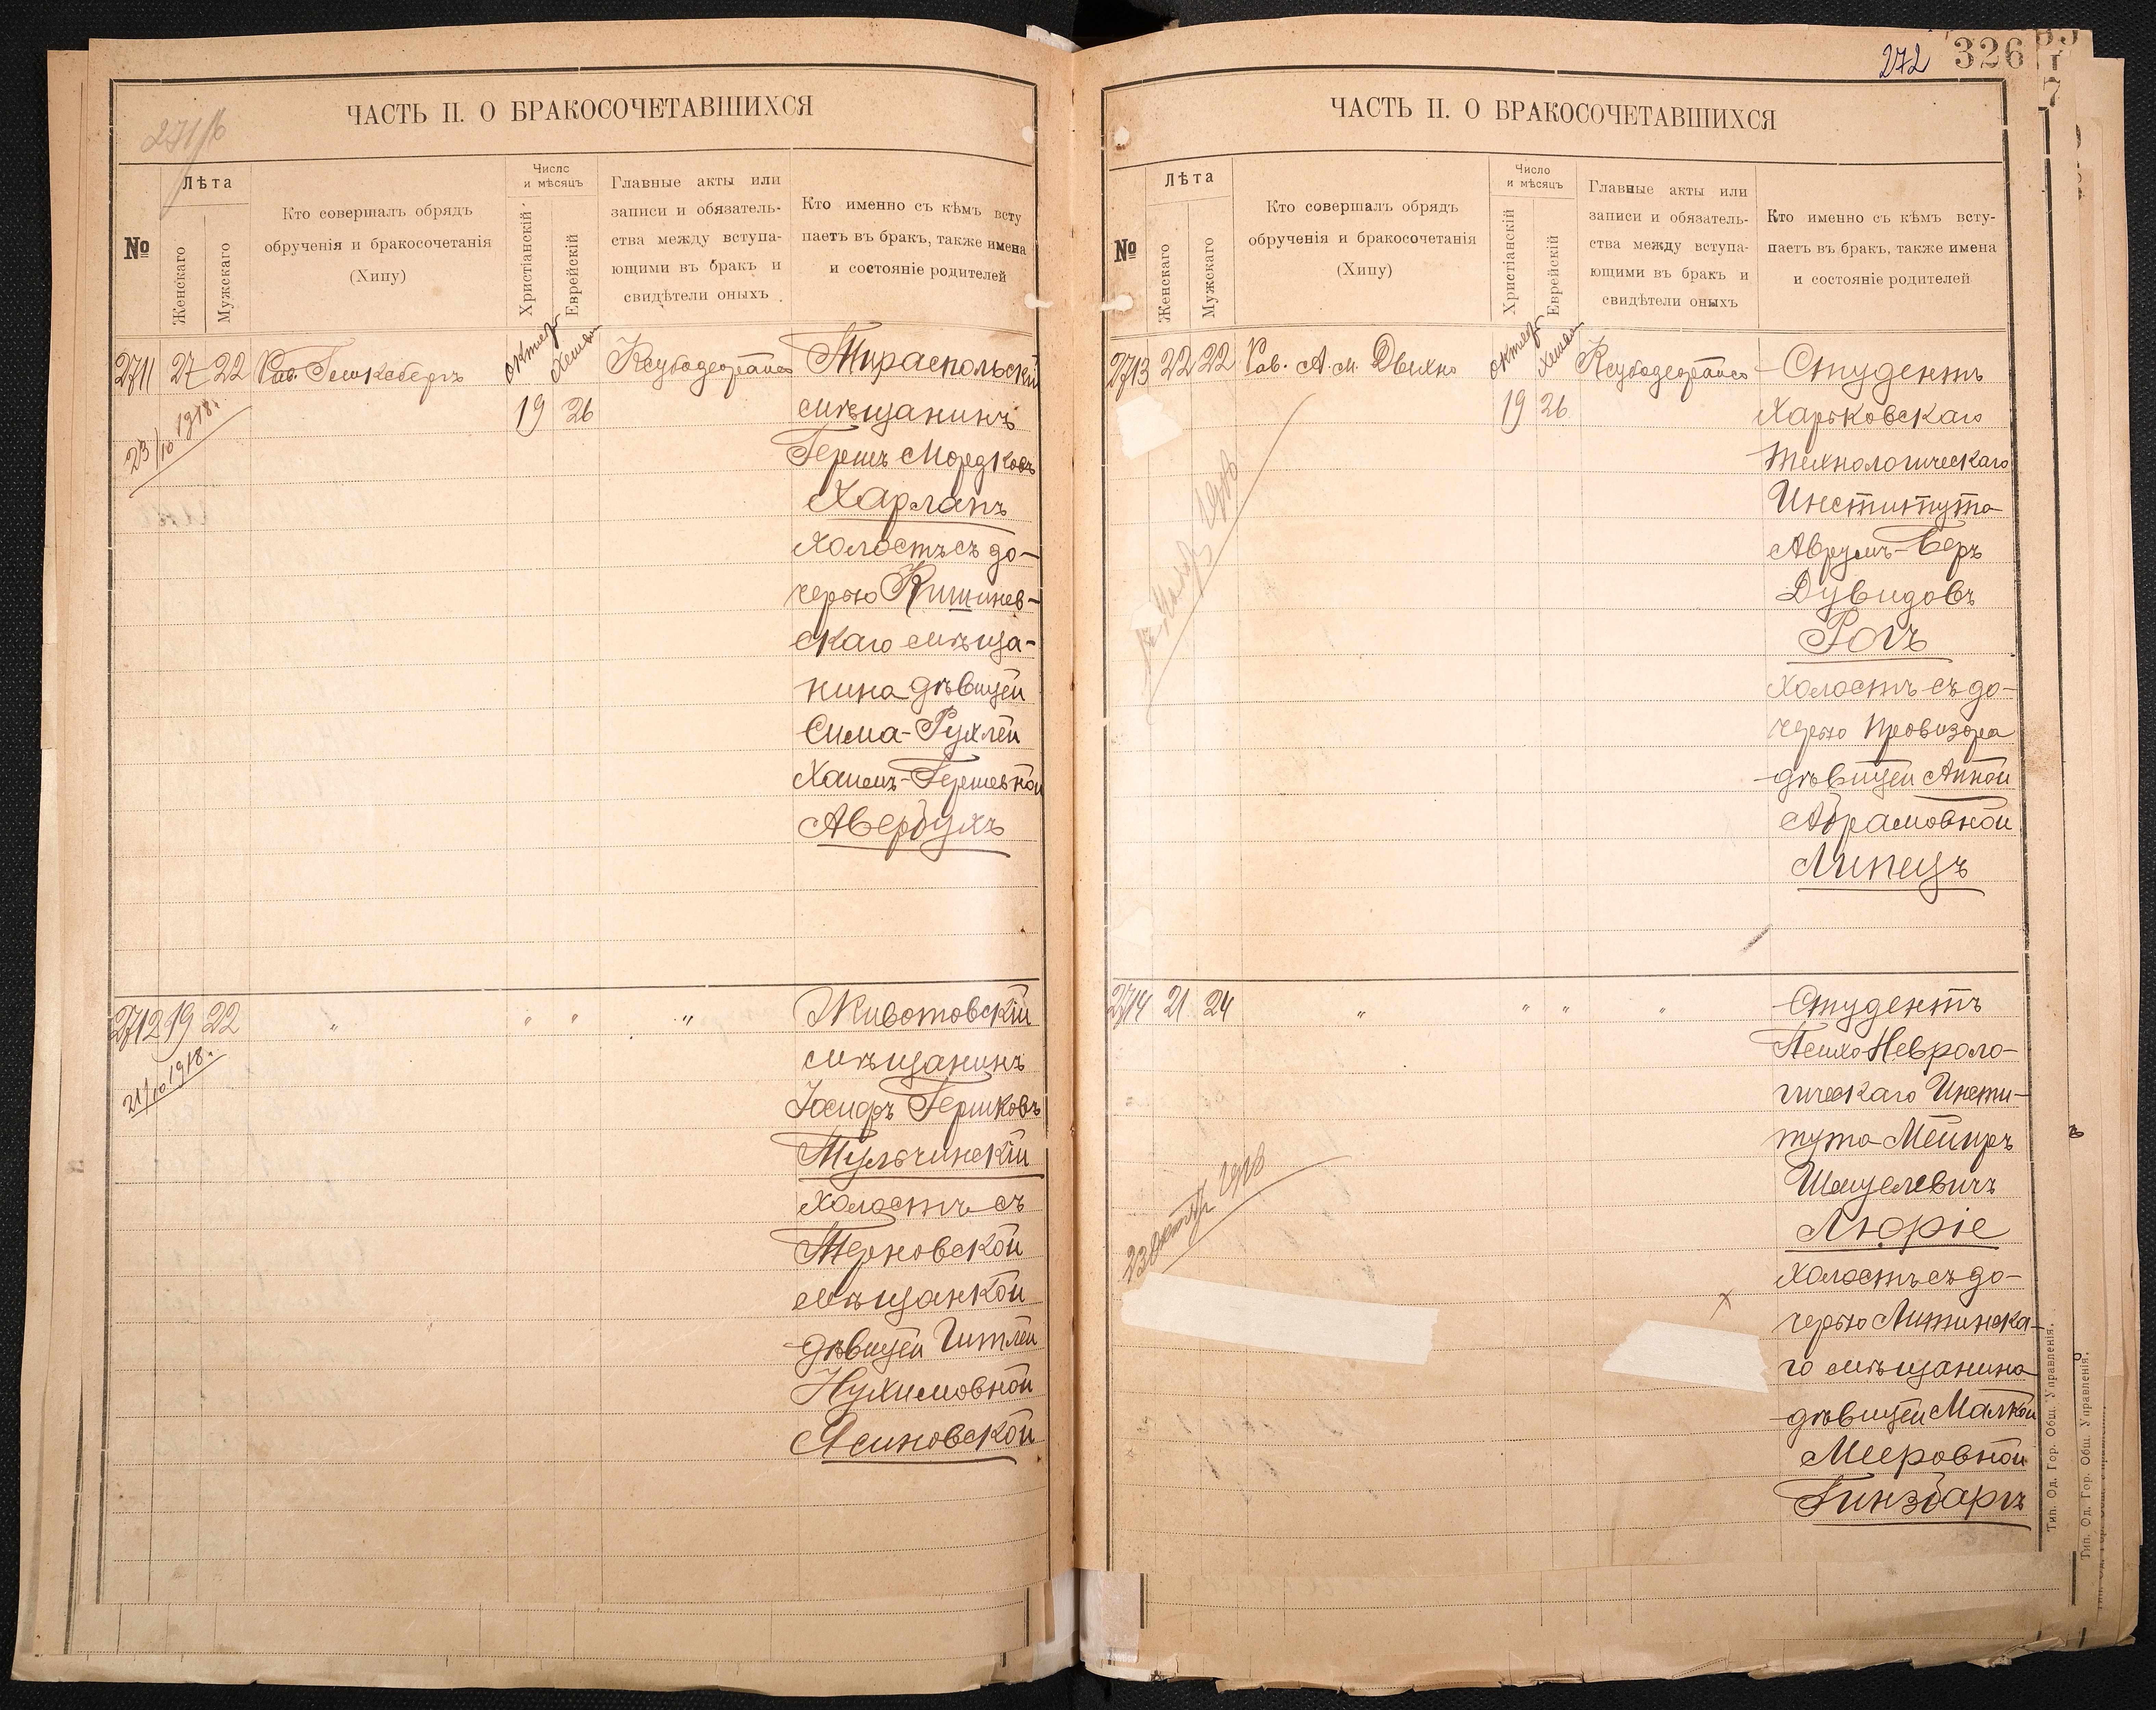 271/б
ЧАСТЬ II. О БРАКОСОЧЕТАВШИХСЯ
№
Лѣта
Женскаго
Мужскаго
Кто совершалъ обрядъ
обрученія и бракосочетанія
(Хипу)
Число
и мѣсяцъ
Христіанскій
Еврейскій
Главные акты или
записи и обязатель-
ства между вступа-
ющими въ бракъ и
свидѣтели оныхъ
Кто именно съ кѣмъ всту
паетъ въ бракъ, также имена
и состояніе родителей
2711 27 22 Рав. октяб Хешван Тираспольскій
19 26 мѣщанинъ
23/10 1918.
Гершъ Мордковъ
Харлапъ
холостъ съ до-
черью Кишинев-
скаго мѣща-
нина дѣвицей
Сима-Рухлей
Хаимъ-Гершевной
Авербухъ
2712 19 22 " " " " Животовскій
21/10 1918.
мѣщанинъ
Іосифъ Гершковъ
Тульчинскій
холостъ съ
Терновской
мѣщанкой
дѣвицей Гитлей
Нухимовной
Ясиновской
272 326
ЧАСТЬ II. О БРАКОСОЧЕТАВШИХСЯ
№
Лѣта
Женскаго
Мужскаго
Кто совершалъ обрядъ
обрученія и бракосочетанія
(Хипу)
Число
и мѣсяцъ
Христіанскій
Еврейскій
Главные акты или
записи и обязатель-
ства между вступа-
ющими въ бракъ и
свидѣтели оныхъ
Кто именно съ кѣмъ всту-
паетъ въ бракъ, также имена
и состояніе родителей
2713 22 22 Рав. А. М. октяб Хешван Студентъ
19 26 Харьковскаго
Технологическаго
Института
Аврумъ-Беръ
Дувидовъ
Рогъ
холостъ съ до-
черью провизора
дѣвицей Анной
Абрамовной
Липецъ
2714 21 24 " " " " Студентъ
Психо Невроло-
гическаго Инсти-
тута Мейеръ
Шмулевичъ
Люріе
23 октяб 1918
холостъ съ до-
черью Литинска-
го мѣщанина
дѣвицей Малкой
Мееровной
Гинзбаргъ
Тип. Од. Гор. Общ. Управленія.
Тип. Од. Гор. Общ. Управленія.